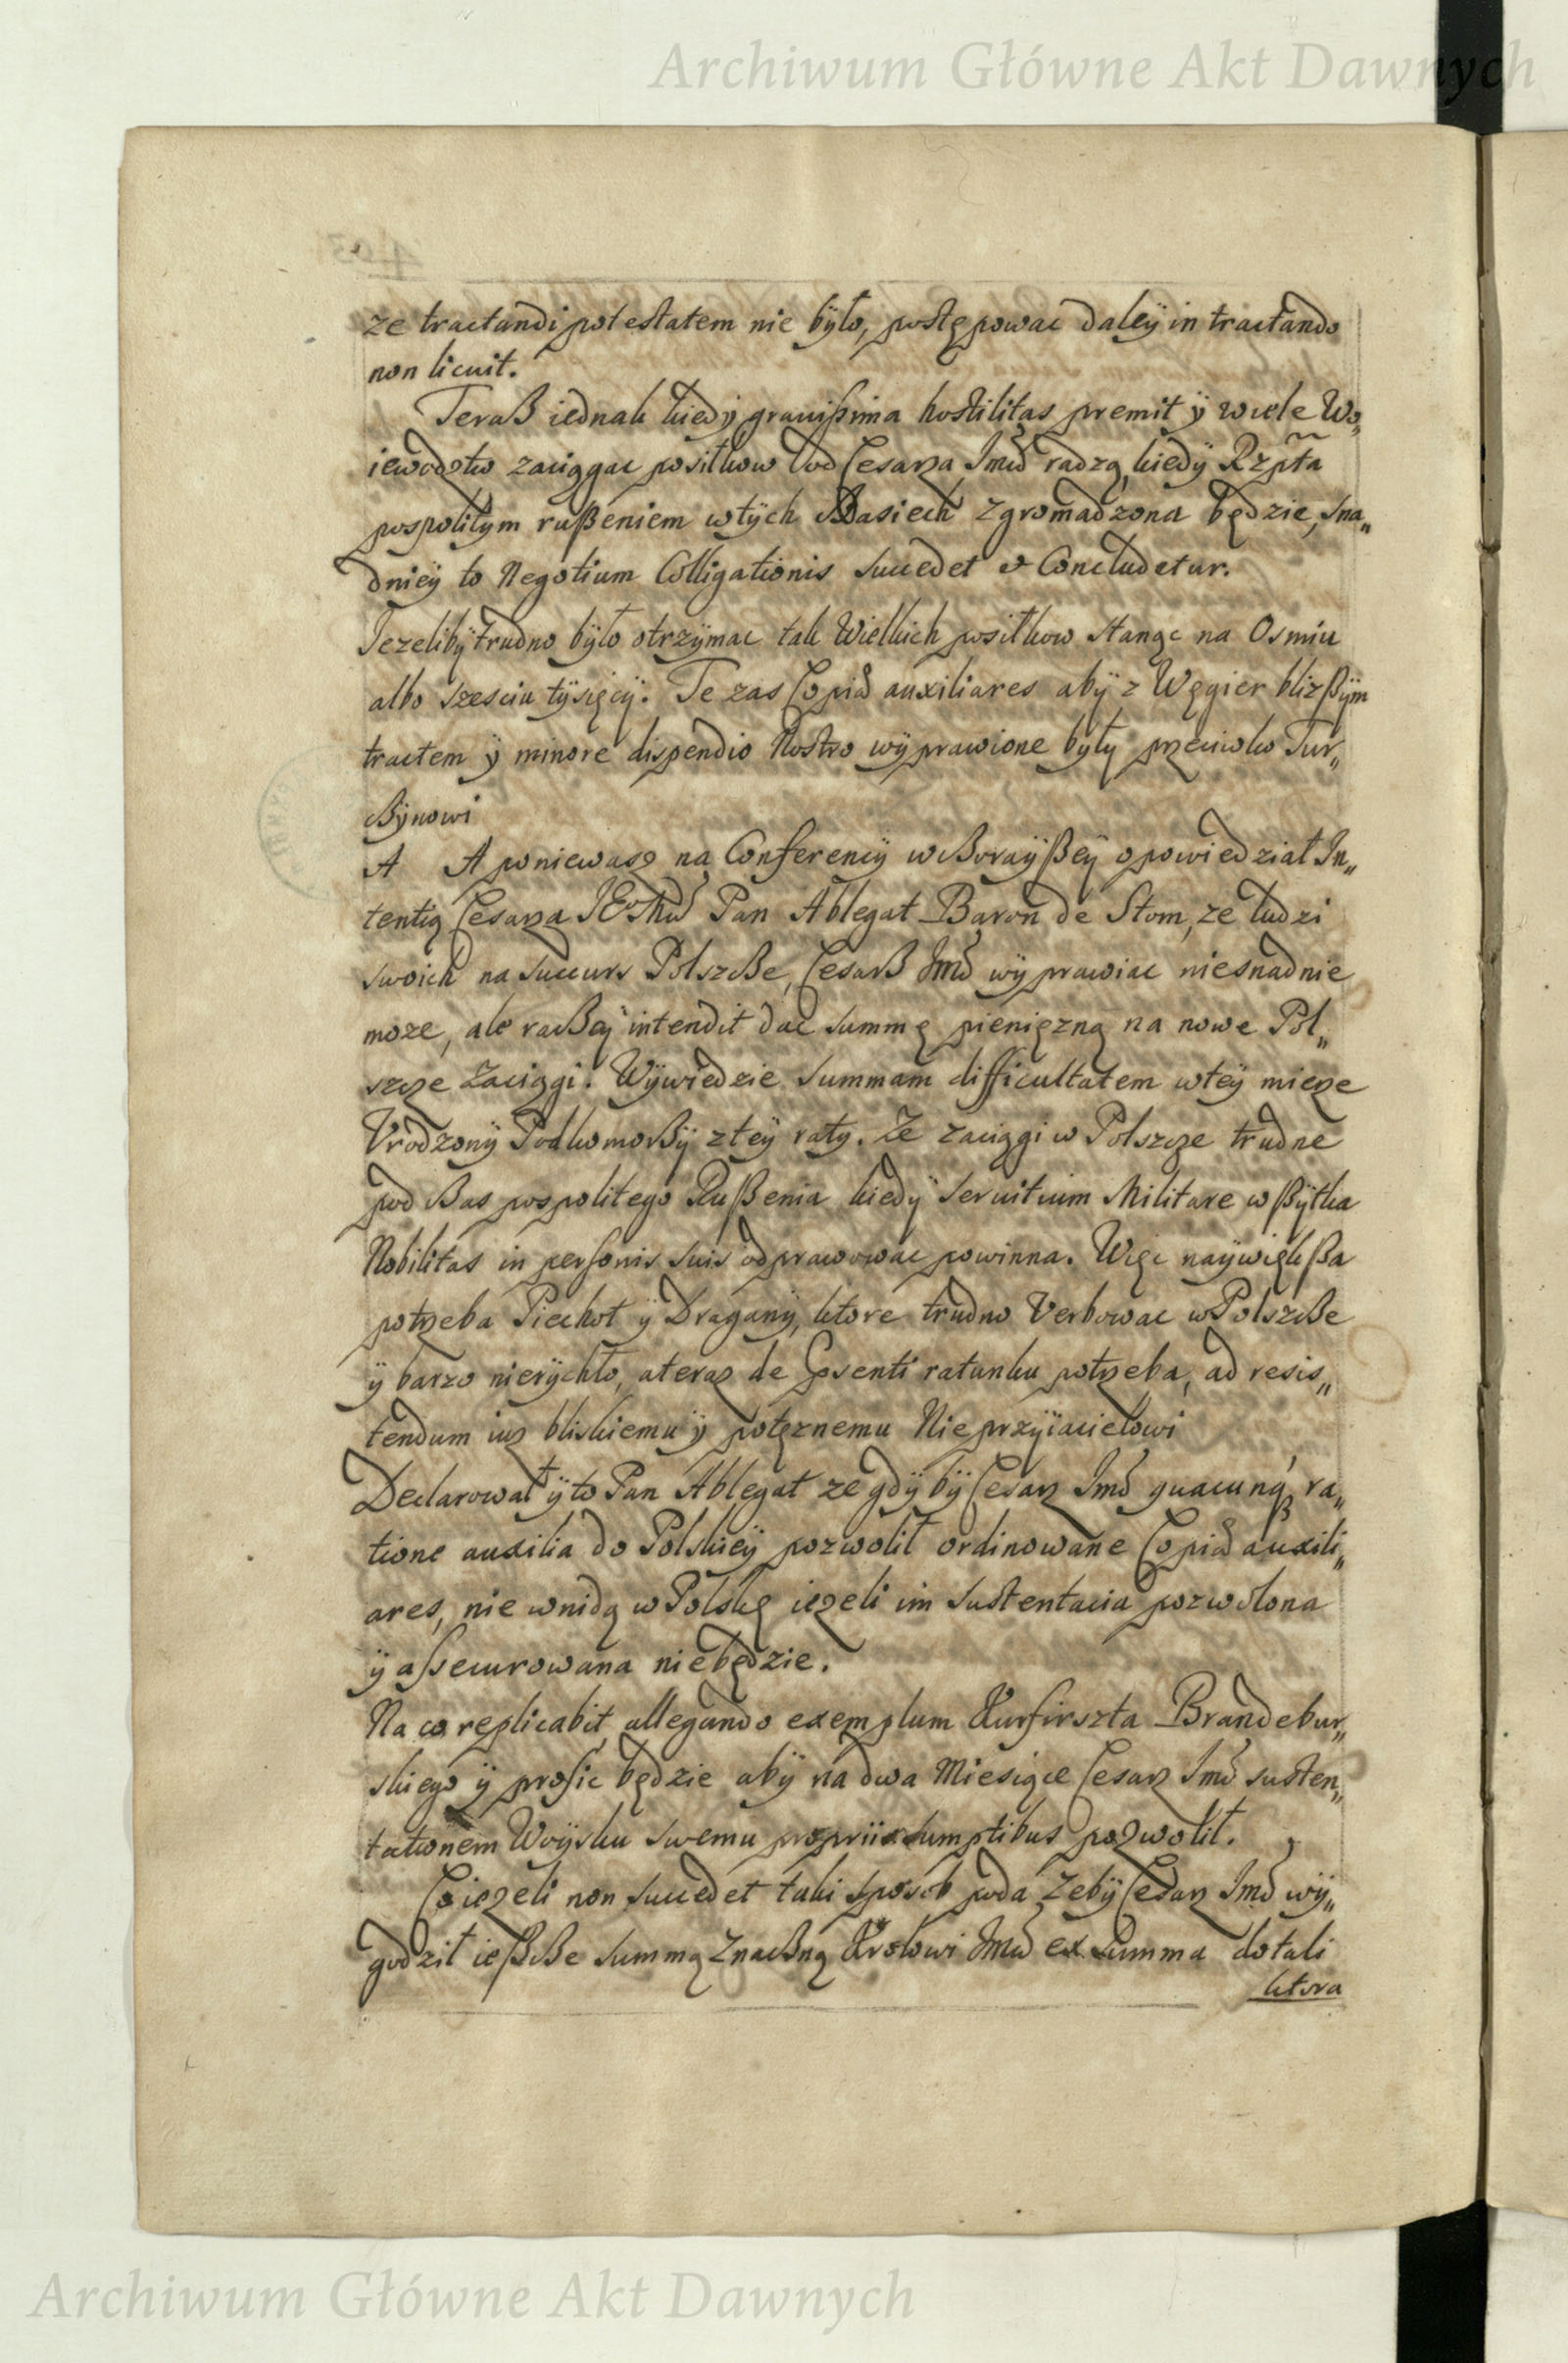 Archiwum Główne Akt Dawnych
ze tractandi potestatem nie bÿło, postępowac daleÿ in tractando
non licuit.
Teraß iednak kiedÿ grauißima hostilitas premit ÿ wiele Wo„
iewodztw zaciągac positkow od Cesarza Jmći radzą, kiedÿ Rzpłta
pospolitym rußeniem w tÿch czasiech zgromadzona będzie, sna„
dnieÿ to Negotium Colligationis succedet et Concludetur.
Jezelibÿ trudno bÿło otrzÿmac tak Wielkich positkow stanąc na Osmiu
albo szesciu tÿsięcÿ. Te zas Copiae auxiliares abÿ z Węgier blizßÿm
tractem ÿ minore dispendio Nostro wÿprawione byłÿ przeciwko Tur„
czÿnowi
A A poniewasz na Conferencÿ wczorayßeÿ opowiedział In„
tentią Cesarza JEoMći Pan Ablegat Baron de Stom, ze ludzi
swoich na succurs Polszcze, Cesarß Jmć wÿprawiac niesnadnie
moze, ale raczeÿ intendit dac summę pienięzną na nowe Pol„
szcze Zaciągi. Wÿwiedzie summam difficultatem w teÿ mierze
Urodzonÿ Podkomorzÿ z teÿ raty. Ze zaciągi w Polszcze trudne
pod czas pospolitego Rußenia kiedÿ seruitium Militare wßÿtka
Nobilitas in personis suis odprawowac powinna. Więc naÿwiękßa
potrzeba Piechot ÿ Draganÿ, ktore trudno Verbowac w Polszcze
ÿ barzo nierÿchło, a teraz de praesenti ratunku potrzeba, ad resis„
tendum iuz bliskiemu ÿ potęznemu Nieprzÿiacielowi
Declarował ÿ to Pan Ablegat ze gdÿ bÿ Cesarz Jmć quacunq3 ra„
tione auxilia do Polskieÿ pozwolił ordinowane Copiae auxili„
ares, nie wnidą w Polskę iezeli im sustentacia pozwolona
ÿ assecurowana niebędzie.
Na co replicabit, allegando exemplum Kurfirszta Brandebur„
skiego ÿ prosic będzie abÿ na dwa Miesiące Cesarz Jmć susten„
tationem Woÿsku swemu propriis sumptibus pozwolił.
Co iezeli non succedet taki sposob poda zebÿ Cesarz Jmć wÿ„
godził ießcze summą znaczną Krolowi Jmći ex summa dotali
ktora
Archiwum Główne Akt Dawnych